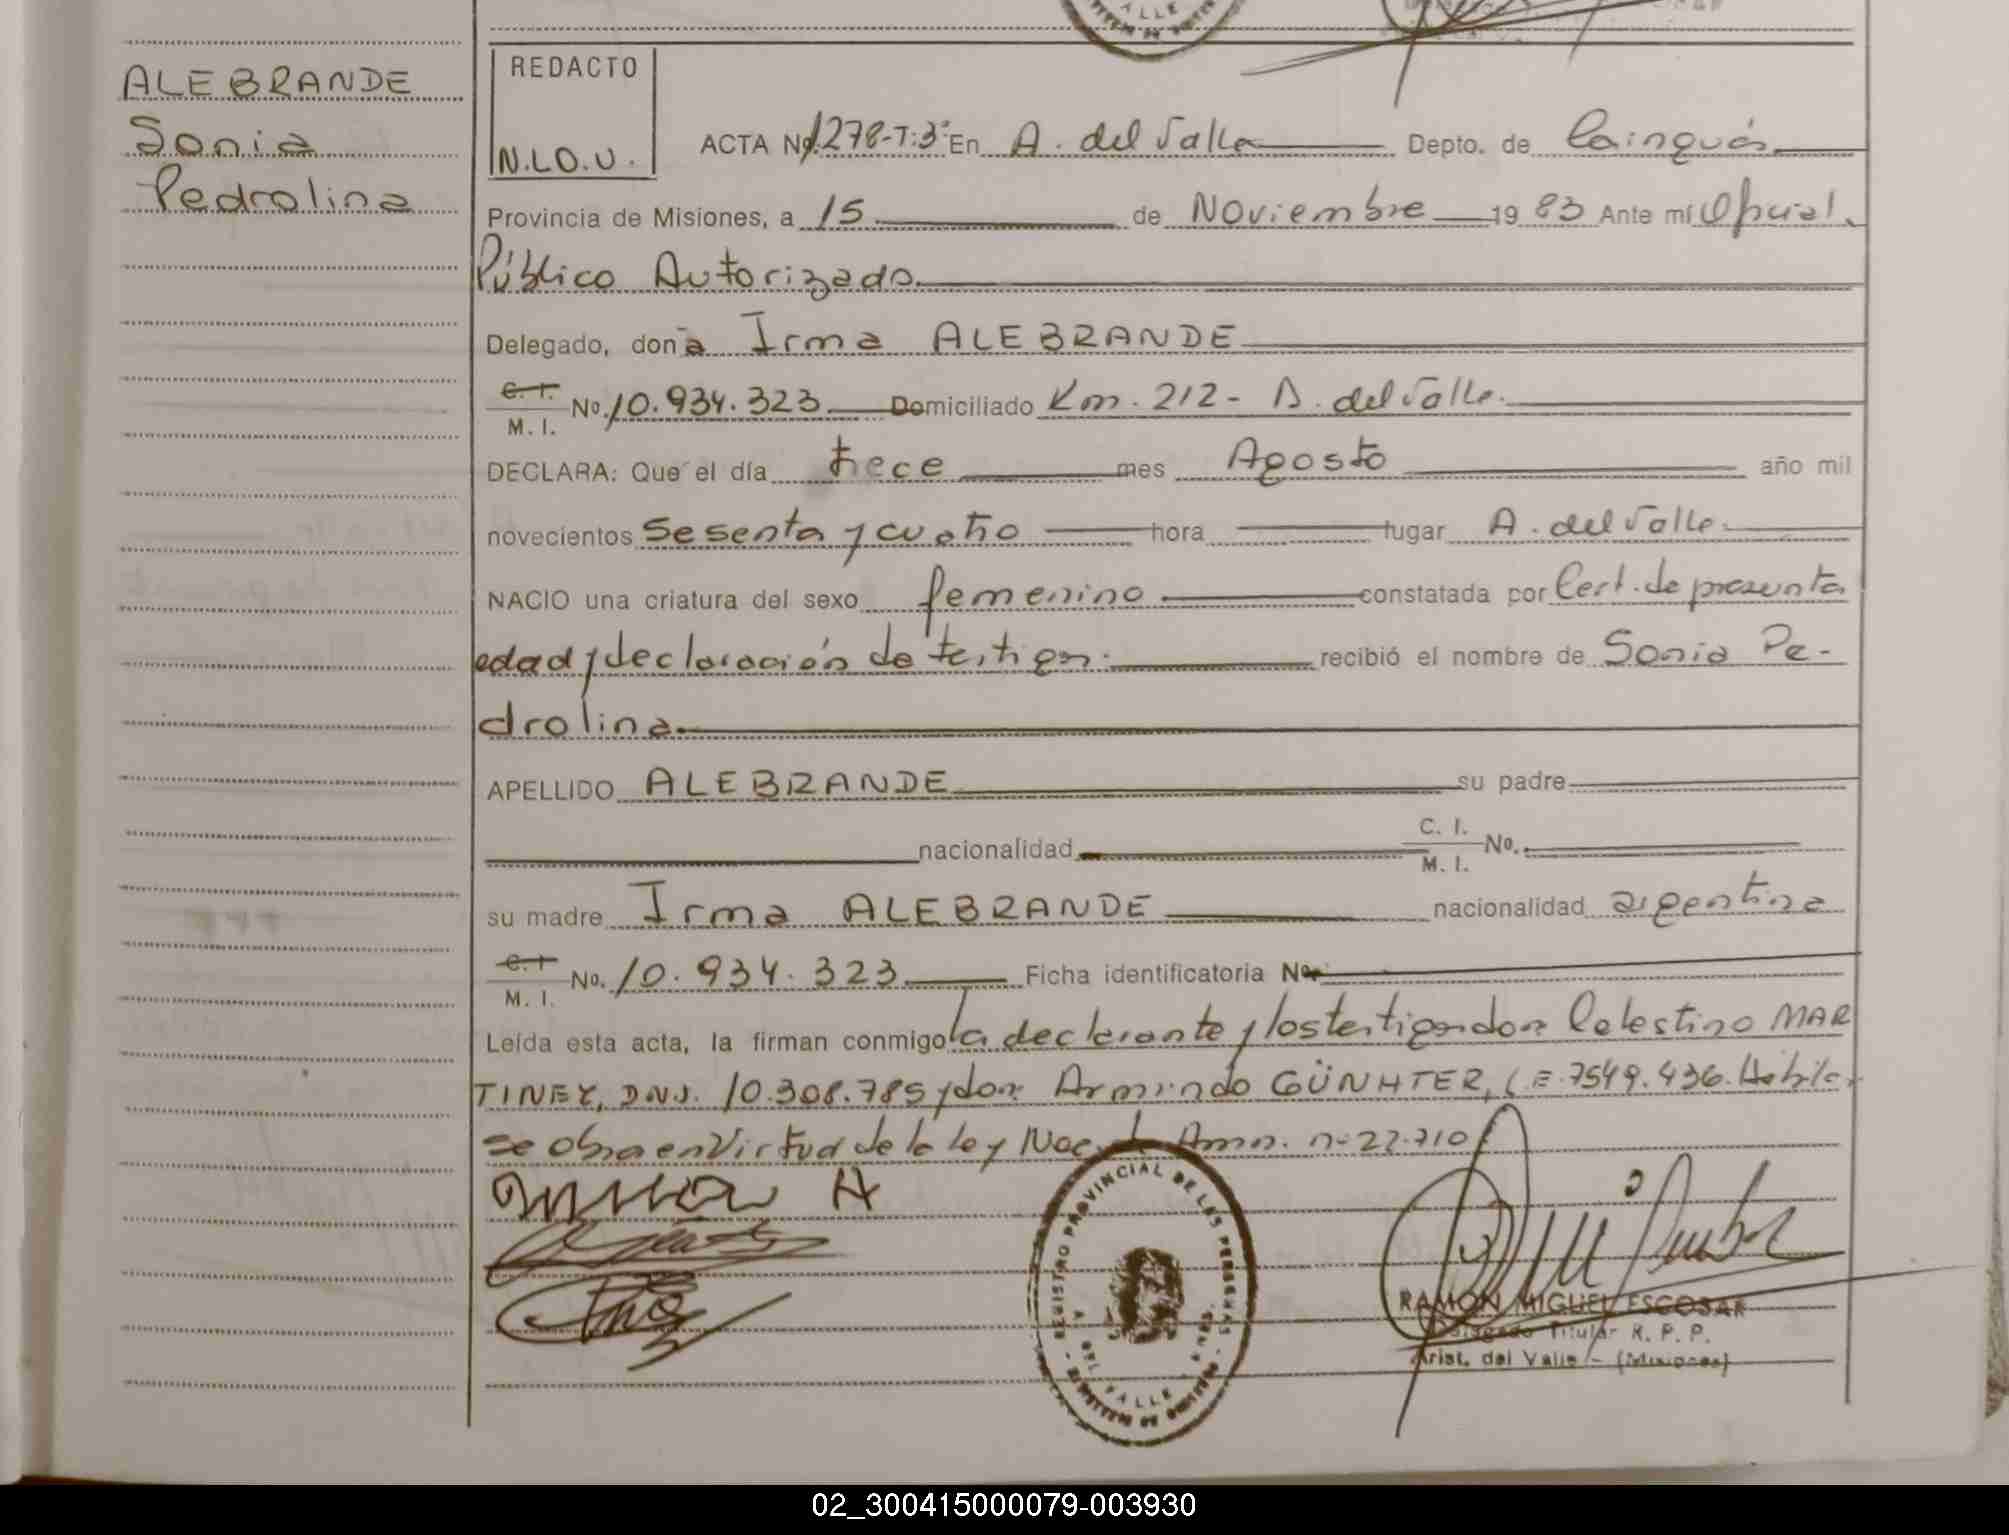 ALEBRANDE
Sonia
Pedrolina
REDACTO
N.L.O.U.
ACTA Nº 1278-T:3º En A. del Valle Depto. de Cainguás
Provincia de Misiones, a 15 de Noviembre 19 83 Ante mí Oficial
Público Autorizado
Delegado, doña Irma ALEBRANDE
C. I. / M. I. No. 10.934.323 Domiciliado Km. 212 - A. del Valle
DECLARA: Que el día trece mes Agosto año mil
novecientos sesenta y cuatro hora lugar A. del Valle
NACIO una criatura del sexo femenino constatada por Cert. de presunta
edad y declaración de testigos. recibió el nombre de Sonia Pe-
drolina
APELLIDO ALEBRANDE su padre
nacionalidad C. I. / M. I. No.
su madre Irma ALEBRANDE nacionalidad argentina
C. I / M. I. No. 10.934.323 Ficha identificatoria No
Leída esta acta, la firman conmigo la declarante y los testigos don Celestino MAR
TINEZ, DNJ. 10.308.785 y don Armindo GÜNHTER, LE 7549.436.
se obra en Virtud de la ley Nac. de Amn. nº 22.710
REGISTRO PROVINCIAL DE LAS PERSONAS
A. DEL VALLE
RAMON MIGUEL ESCOBAR
Delegado Titular R. P. P.
Arist. del Valle - (Misiones)
02_300415000079-003930